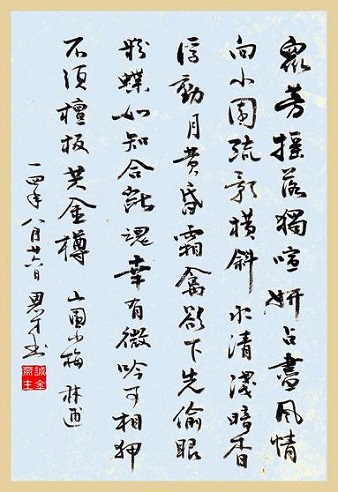 眾芳搖落獨喧妍占盡風情
向小園疏影橫斜水清淺暗香
浮動月黃昏霜禽欲下先偷眼
粉蝶如知合斷魂幸有微吟可相狎
不須檀板共金樽 山園小梅 林逋
一四年八月廿六日 书
誠金
齋主